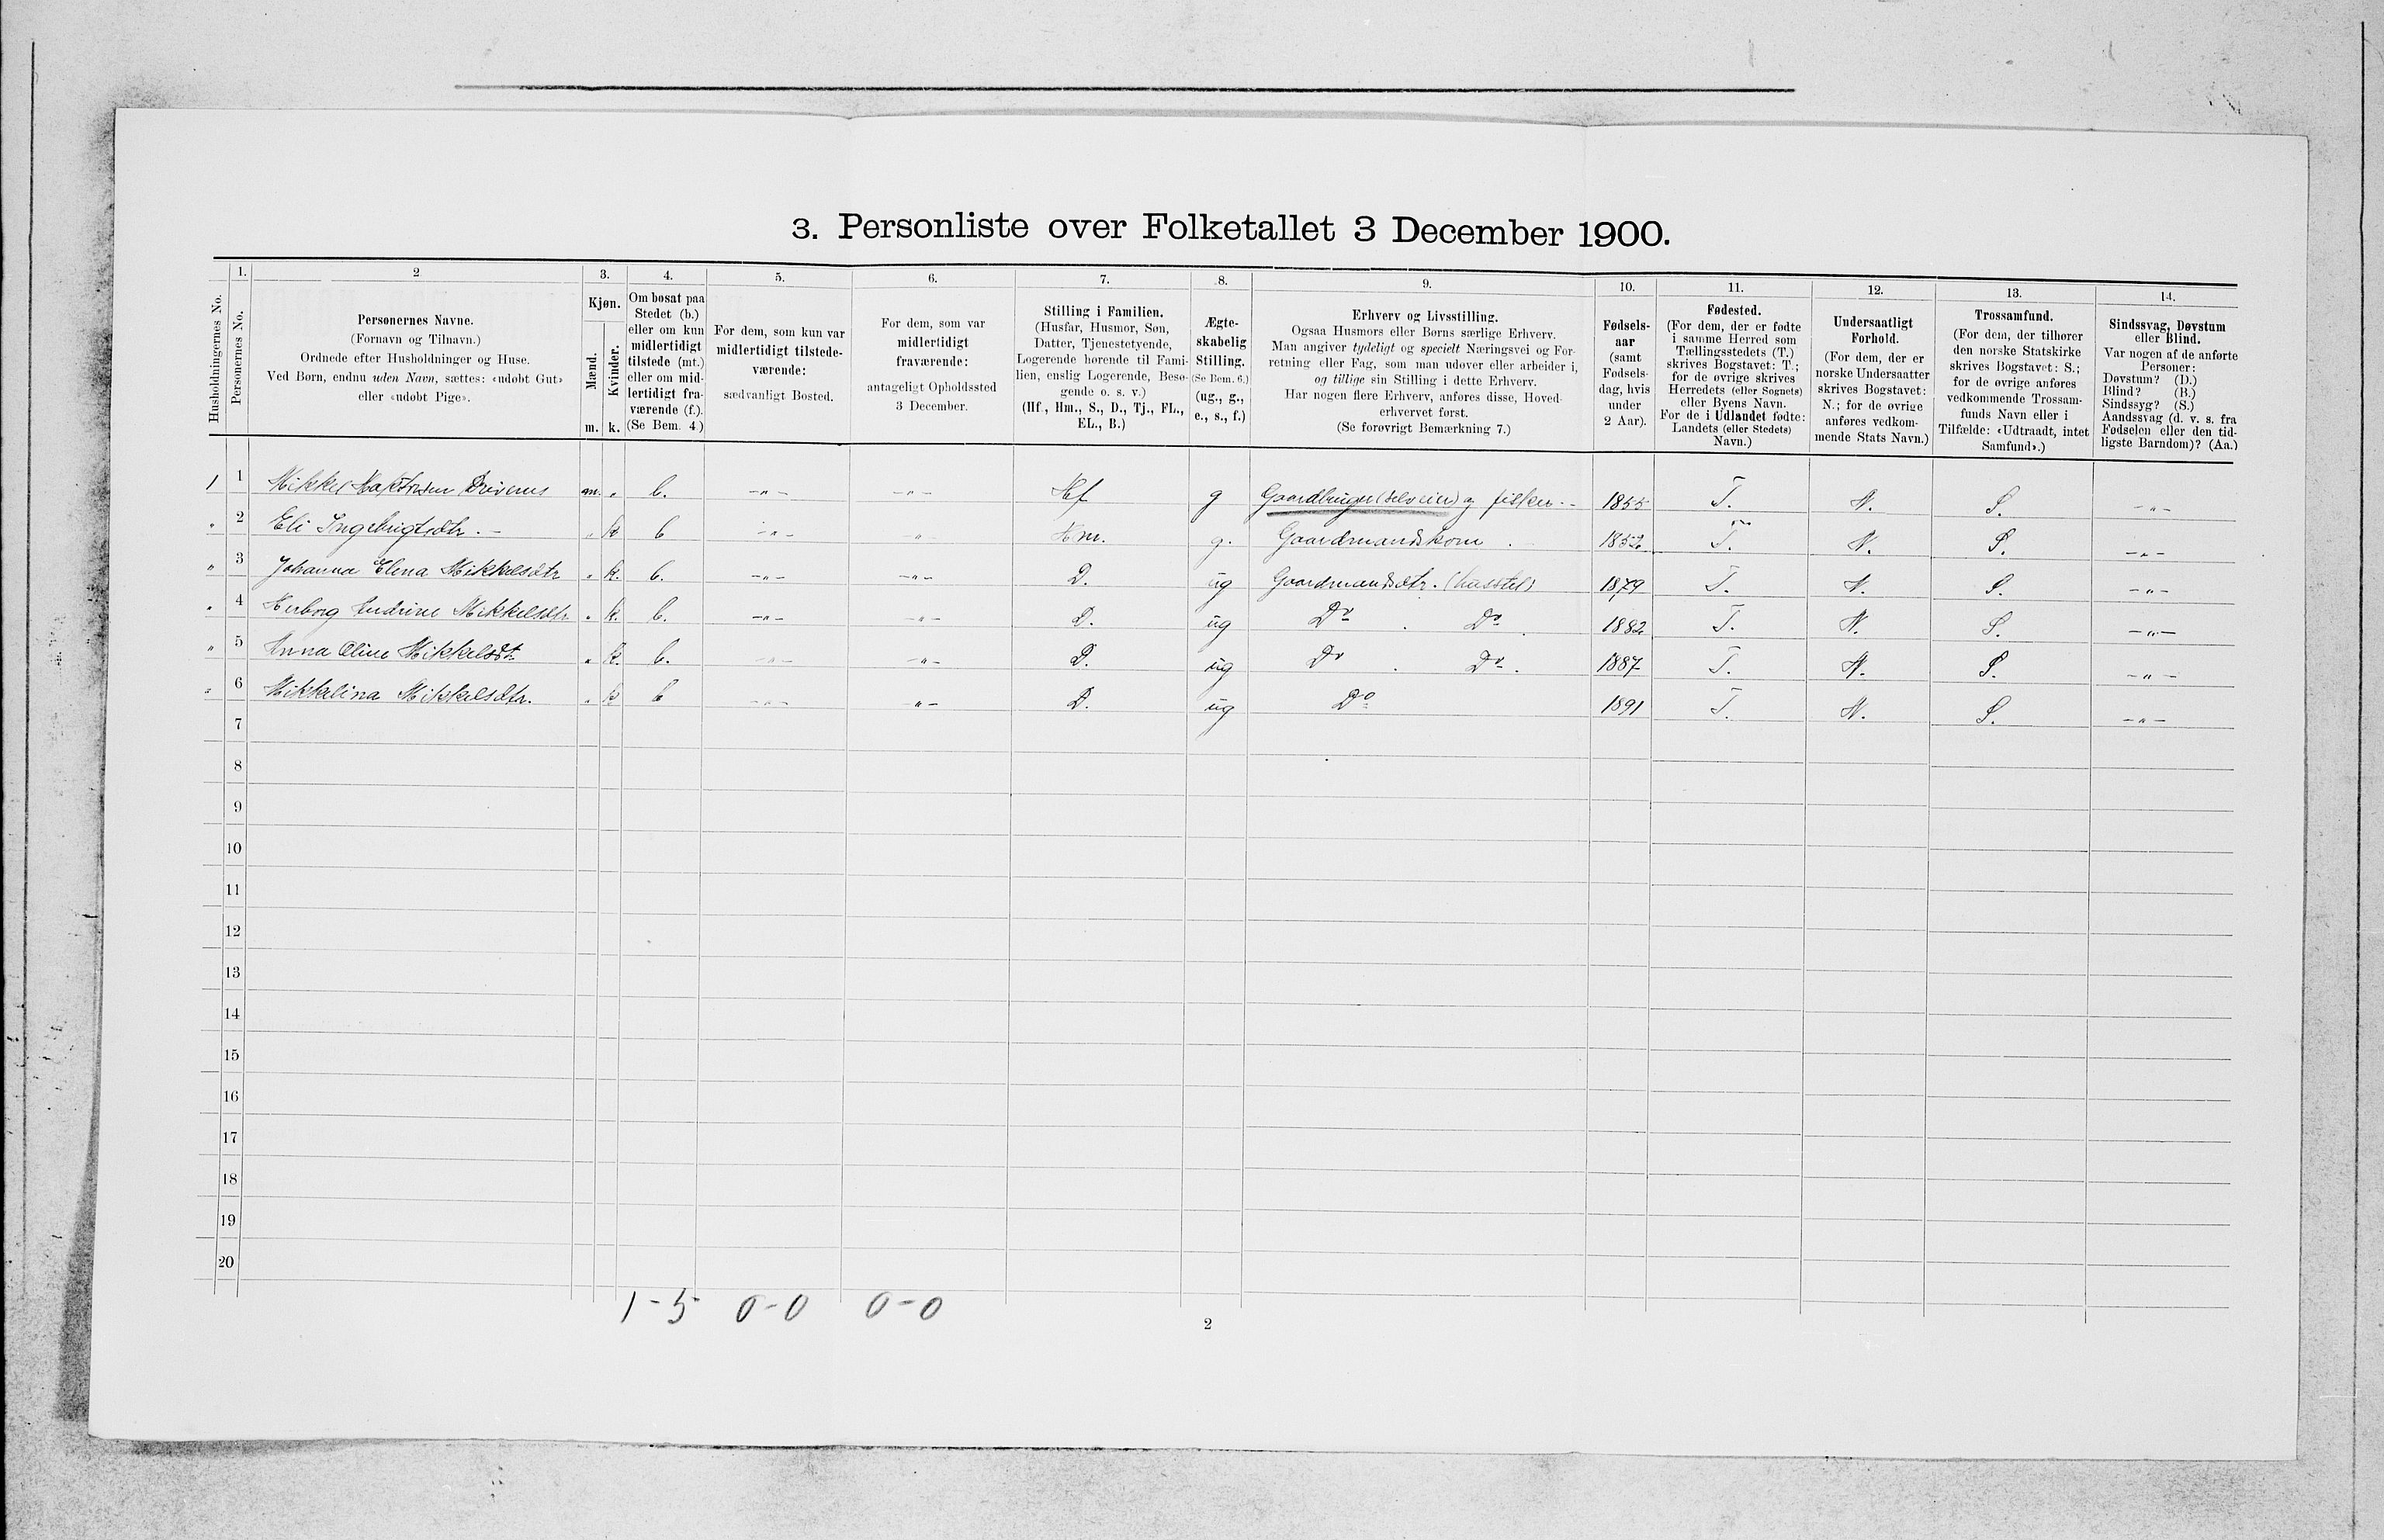 3. Personliste over Folketallet 3 December 1900.
Husholdningernes No.
1.
Personernes No.
2
Personernes Navne.
(Fornavn og Tilnavn.)
Ordnede efter Husholdninger og Huse.
Ved Børn, endnu uden Navn, sættes: «udøbt Gut»
eller «udøbt Pige».
3.
Kjøn.
Mænd.
Kvinder.
m.
k.
4.
Om bosat paa
Stedet (b.)
eller om kun
midlertidigt
tilstede (mt.)
eller om mid-
lertidigt fra-
værende (f.).
(Se Bem. 4.)
5.
For dem, som kun var
midlertidigt tilstede-
værende:
sædvanligt Bosted.
6.
For dem, som var
midlertidigt
fraværende:
antageligt Opholdssted
3 December.
7.
Stilling i Familien.
(Husfar, Husmor, Søn,
Datter, Tjenestetyende,
Logerende hørende til Fami-
lien, enslig Logerende, Besø-
gende o. s. v.)
(Hf., Hm., S., D., Tj., FL.,
EL., B.)
8.
Ægte-
skabelig
Stilling.
(Se Bem. 6.)
(ug., g.,
e., s., f.)
9.
Erhverv og Livsstilling.
Ogsaa Husmors eller Børns særlige Erhverv.
Man angiver tydeligt og specielt Næringsvei og For-
retning eller Fag, som man udøver eller arbeider i,
og tillige sin Stilling i dette Erhverv.
Har nogen flere Erhverv, anføres disse, Hoved-
erhvervet først.
(Se forøvrigt Bemærkning 7.)
10.
Fødsels-
aar
(samt
Fødsels-
dag, hvis
under
2 Aar).
11.
Fødested.
(For dem, der er fødte
i samme Herred som
Tællingsstedets (T.)
skrives Bogstavet: T.;
for de øvrige skrives
Herredets (eller Sognets)
eller Byens Navn.
For de i Udlandet fødte:
Landets (eller Stedets)
Navn.)
12.
Undersaatligt
Forhold.
(For dem, der er
norske Undersaatter
skrives Bogstavet:
N.; for de øvrige
anføres vedkom-
mende Stats Navn.)
13.
Trossamfund.
(For dem, der tilhører
den norske Statskirke
skrives Bogstavet: S.;
for de øvrige anføres
vedkommende Trossam-
funds Navn eller i
Tilfælde: «Udtraadt, intet
Samfund».)
14.
Sindssvag, Døvstum
eller Blind.
Var nogen af de anførte
Personer:
Døvstum? (D.)
Blind? (B.)
Sindssyg? (S.)
Aandssvag (d. v. s. fra
Fødselen eller den tid-
ligste Barndom)? (Aa.)
1 1 Mikkel m. „ b. -„- -„- Hf g Gaardbruger (selveier) og fisker. 1855 T. N. S. -„-
„ 2 Eli Ingebrigtsdtr. „ k b -„- -„- Hm. g. Gaardmandskone. 1852 T. N. S. -„-
„ 3 Johanna Elena Mikkelsdtr „ k. b. -„- -„- D. ug Gaardmandsdtr. (husstel) 1879 T. N. S. -„-
„ 4 Mikkelsdtr. „ k. b. -„- -„- D. ug Do. Do. 1882 T. N. S. -„-
„ 5 Anna Oline Mikkelsdt. „ k. b. -„- -„- D. ug Do. Do. 1887 T. N. S. -„-
„ 6 Mikkalina Mikkelsdtr. „ k b -„- -„- D. ug Do 1891 T. N. S. -„-
7
8
9
10
11
12
13
14
15
16
17
18
19
20
1-5 0-0 0-0
2